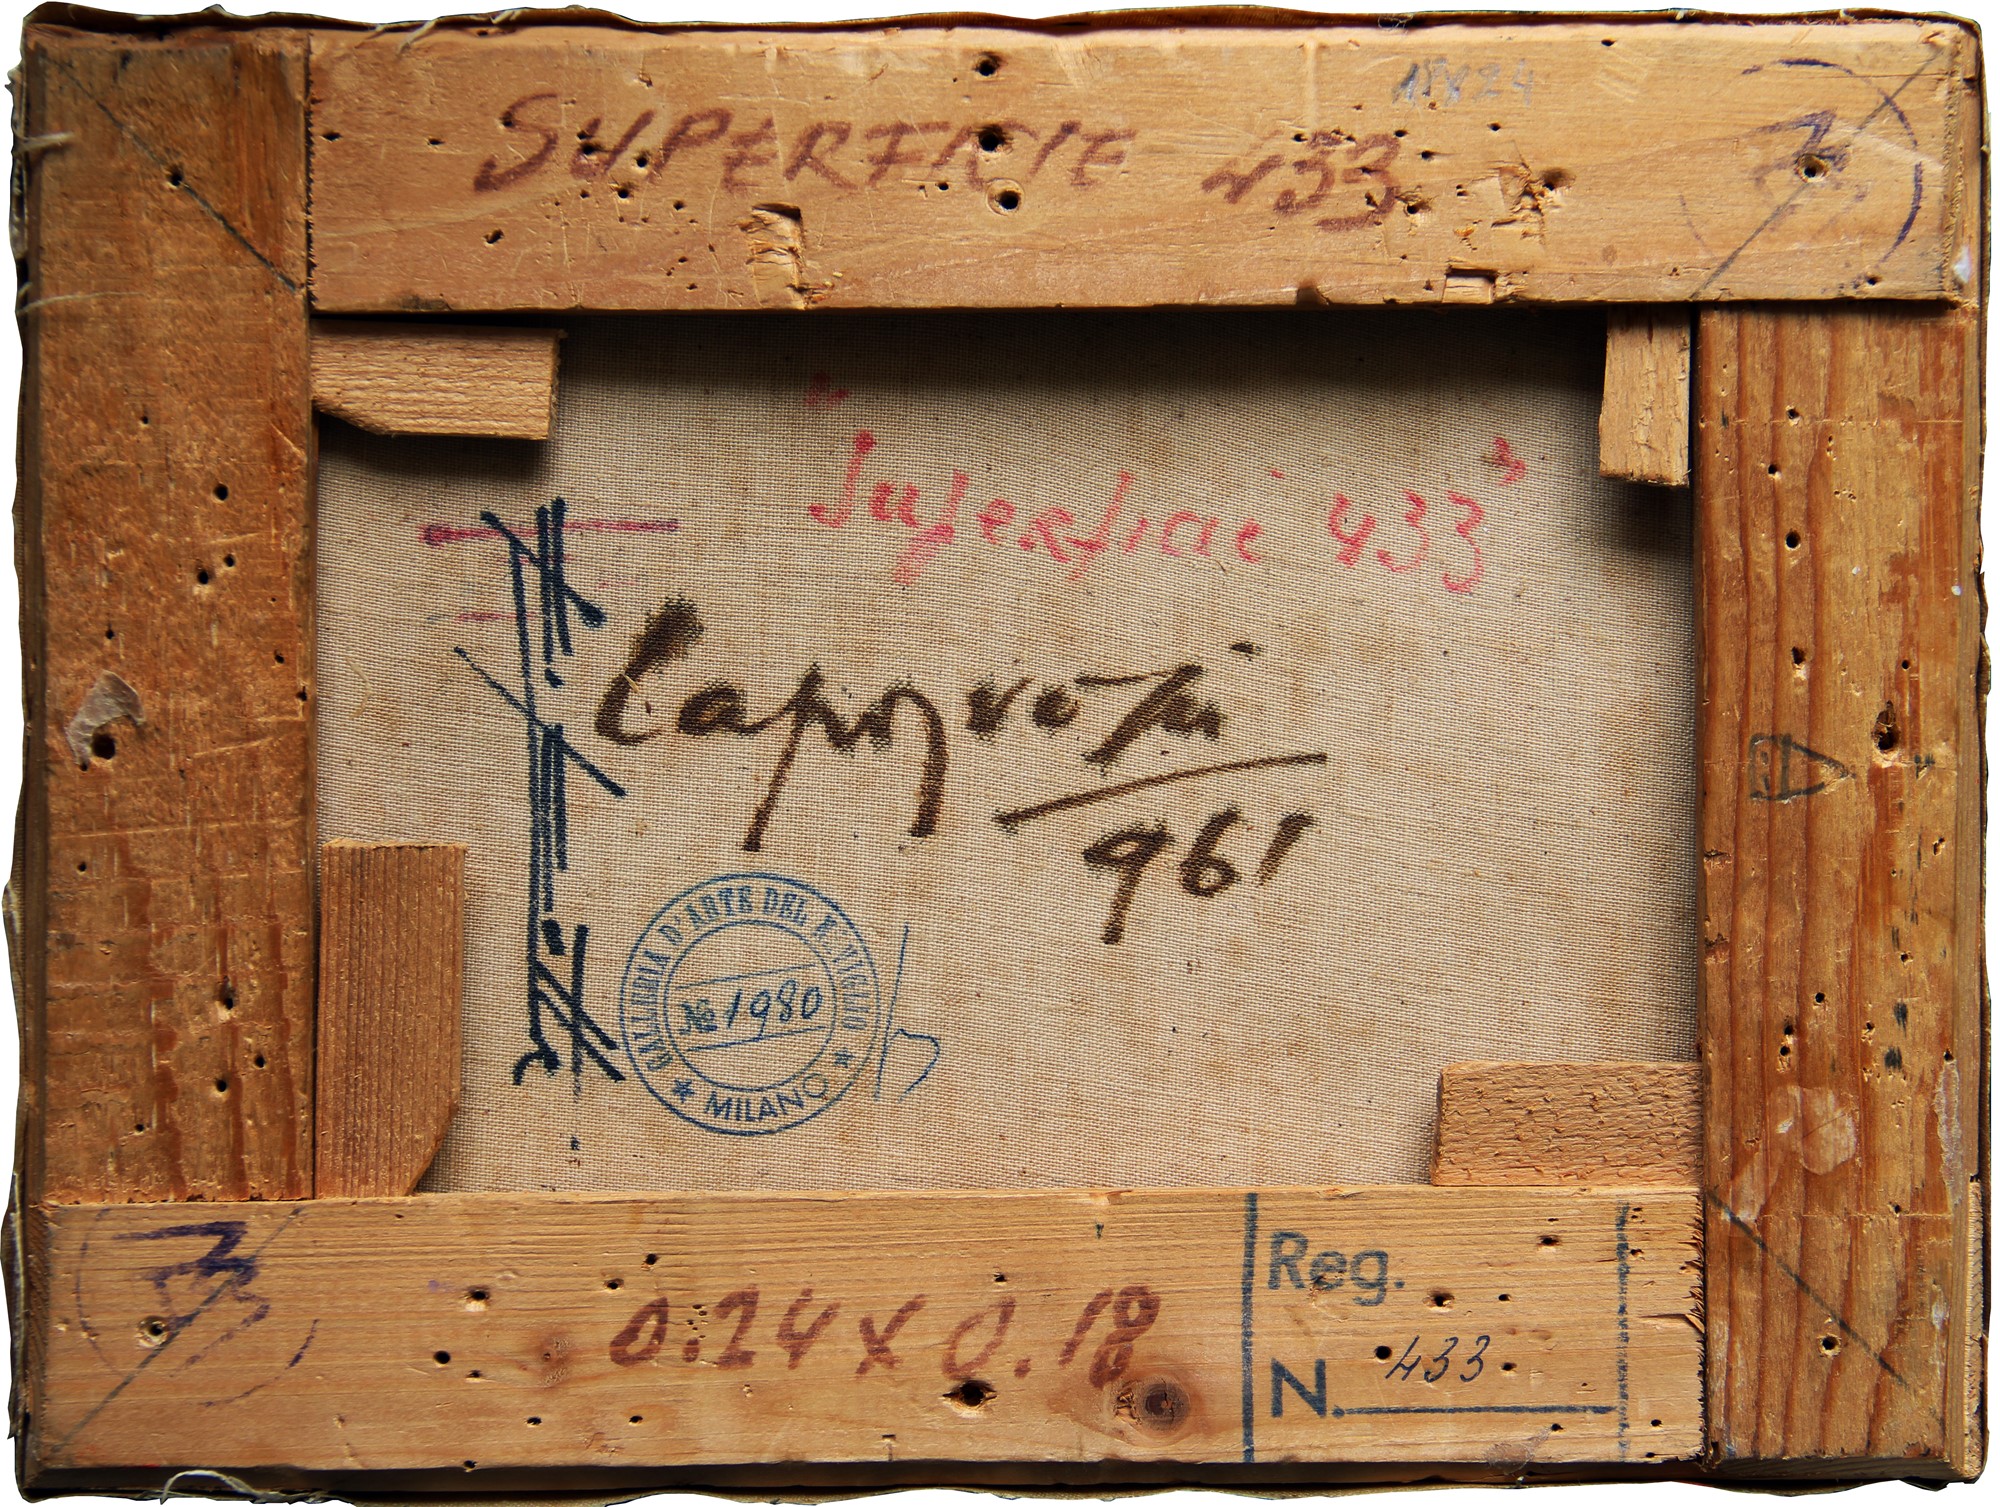 18x24
SUPERFICIE 433
"Superficie 433"
Capogrossi
961
GALLERIA D'ARTE DEL NAVIGLIO
No 1980
★ MILANO ★
A
0.24 x 0.18
Reg.
N. 433